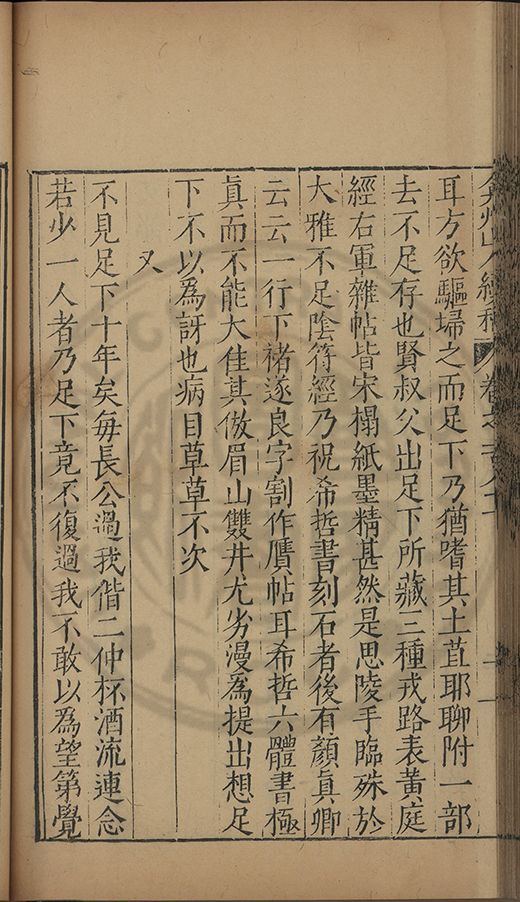 弇州山人續稿 卷之一百八十二
耳方欲驅埽之而足下乃猶嗜其土苴耶聊附一部
去不足存也賢叔父出足下所藏三種戎路表黃庭
經右軍雜帖皆宋榻紙墨精甚然是思陵手臨殊於
大雅不足陰符經乃祝希哲書刻石者後有顏眞卿
云云一行下褚遂良字割作贋帖耳希哲六體書極
眞而不能大佳其倣眉山雙井尤劣漫為提出想足
下不以為訝也病目草草不次
又
不見足下十年矣每長公過我偕二仲杯酒流連念
若少一人者乃足下竟不復過我不敢以為望第覺